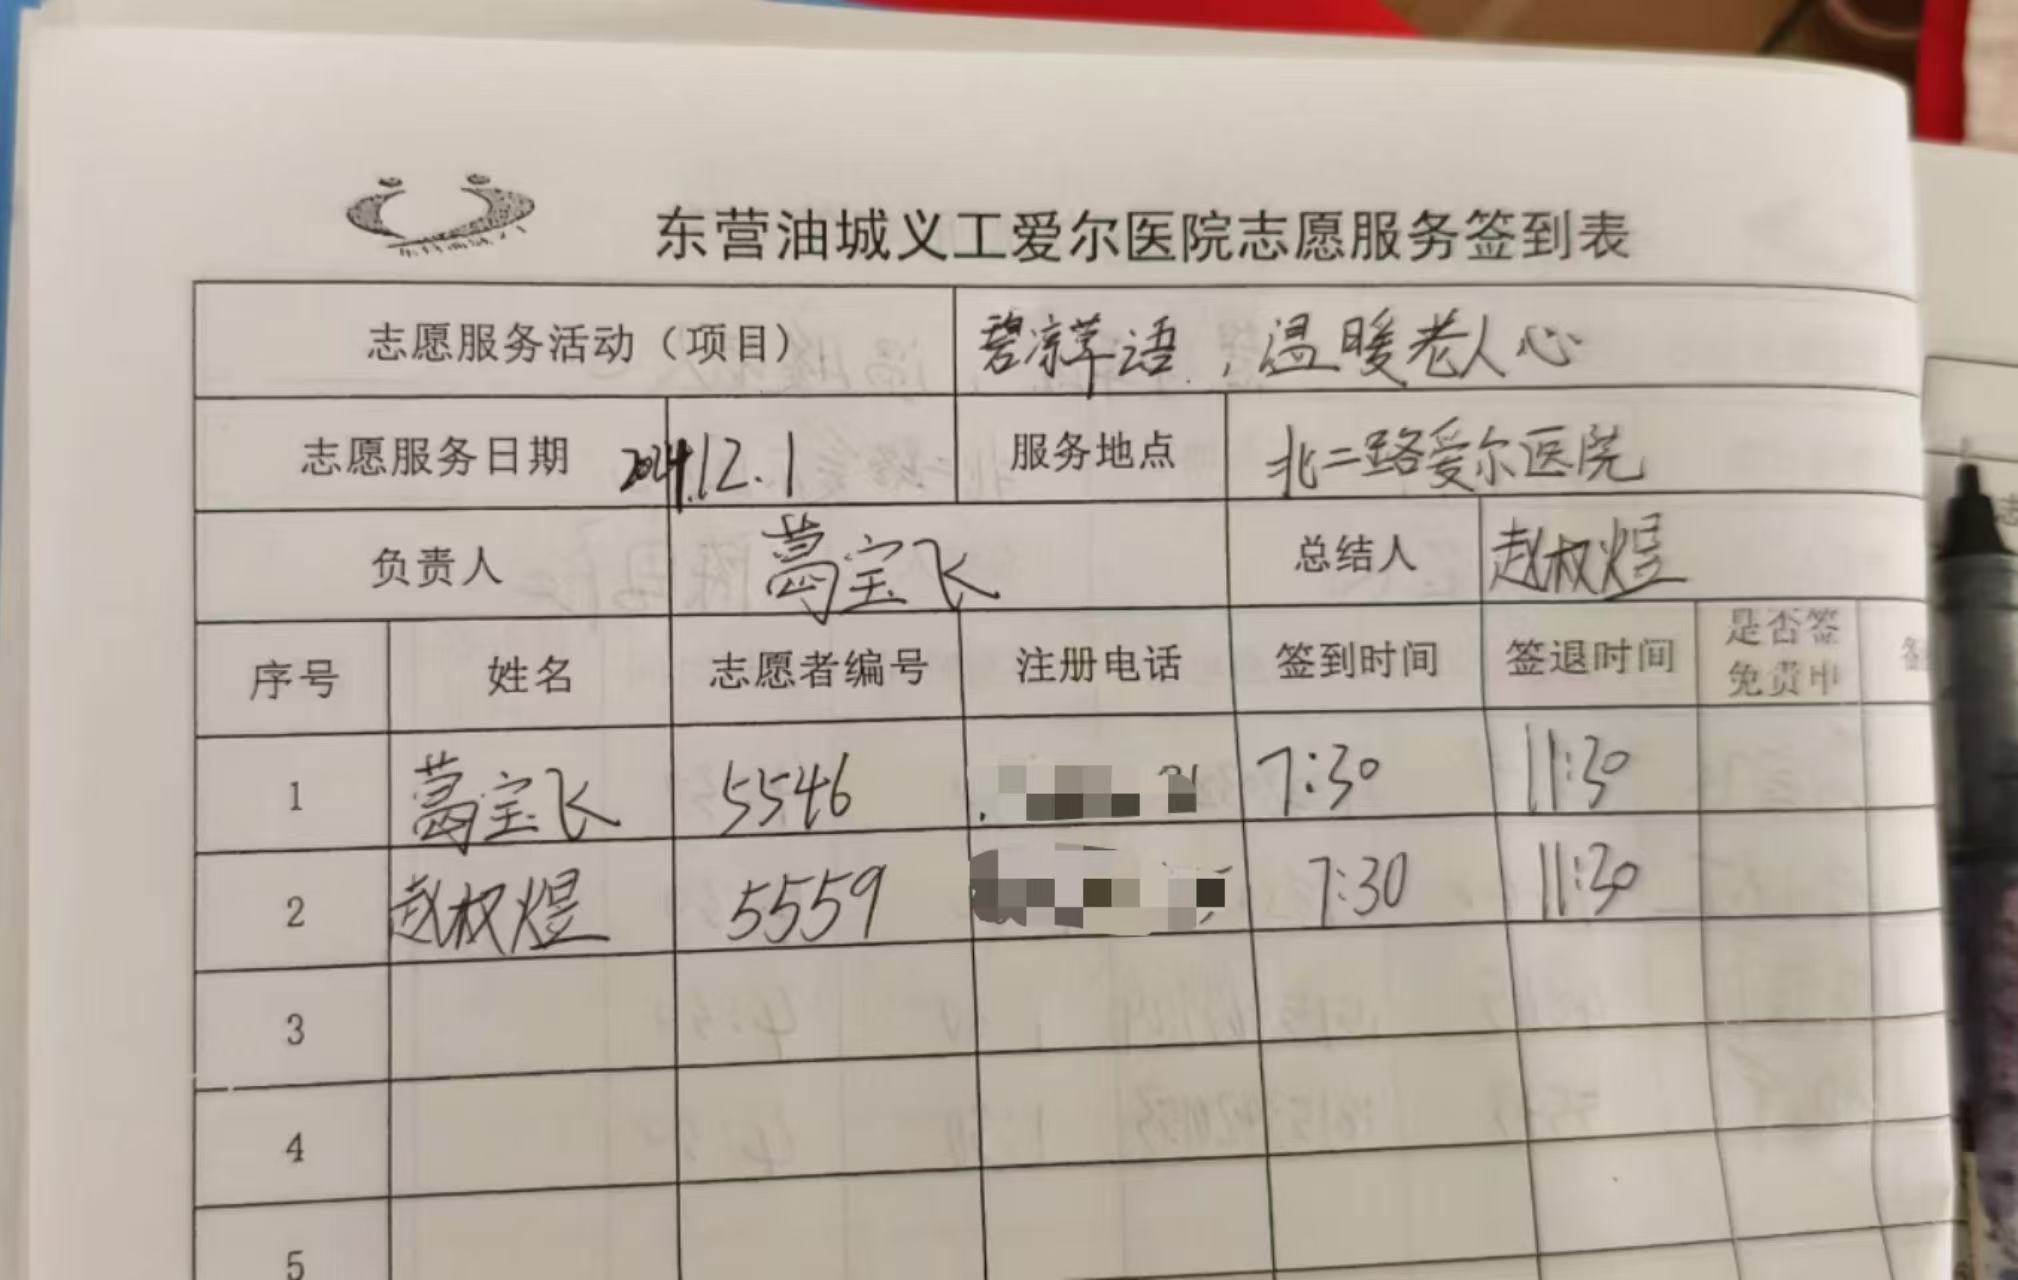 东营油城义工爱尔医院志愿服务签到表
志愿服务活动（项目） 碧凉草语，温暖老人心
志愿服务日期 2024.12.1 服务地点 北二路爱尔医院
负责人 葛宝飞 总结人 赵叔煜
序号 姓名 志愿者编号 注册电话 签到时间 签退时间 是否签
免费申
1 葛宝飞 5546 7:30 11:30
2 赵叔煜 5559 7:30 11:30
3
4
5